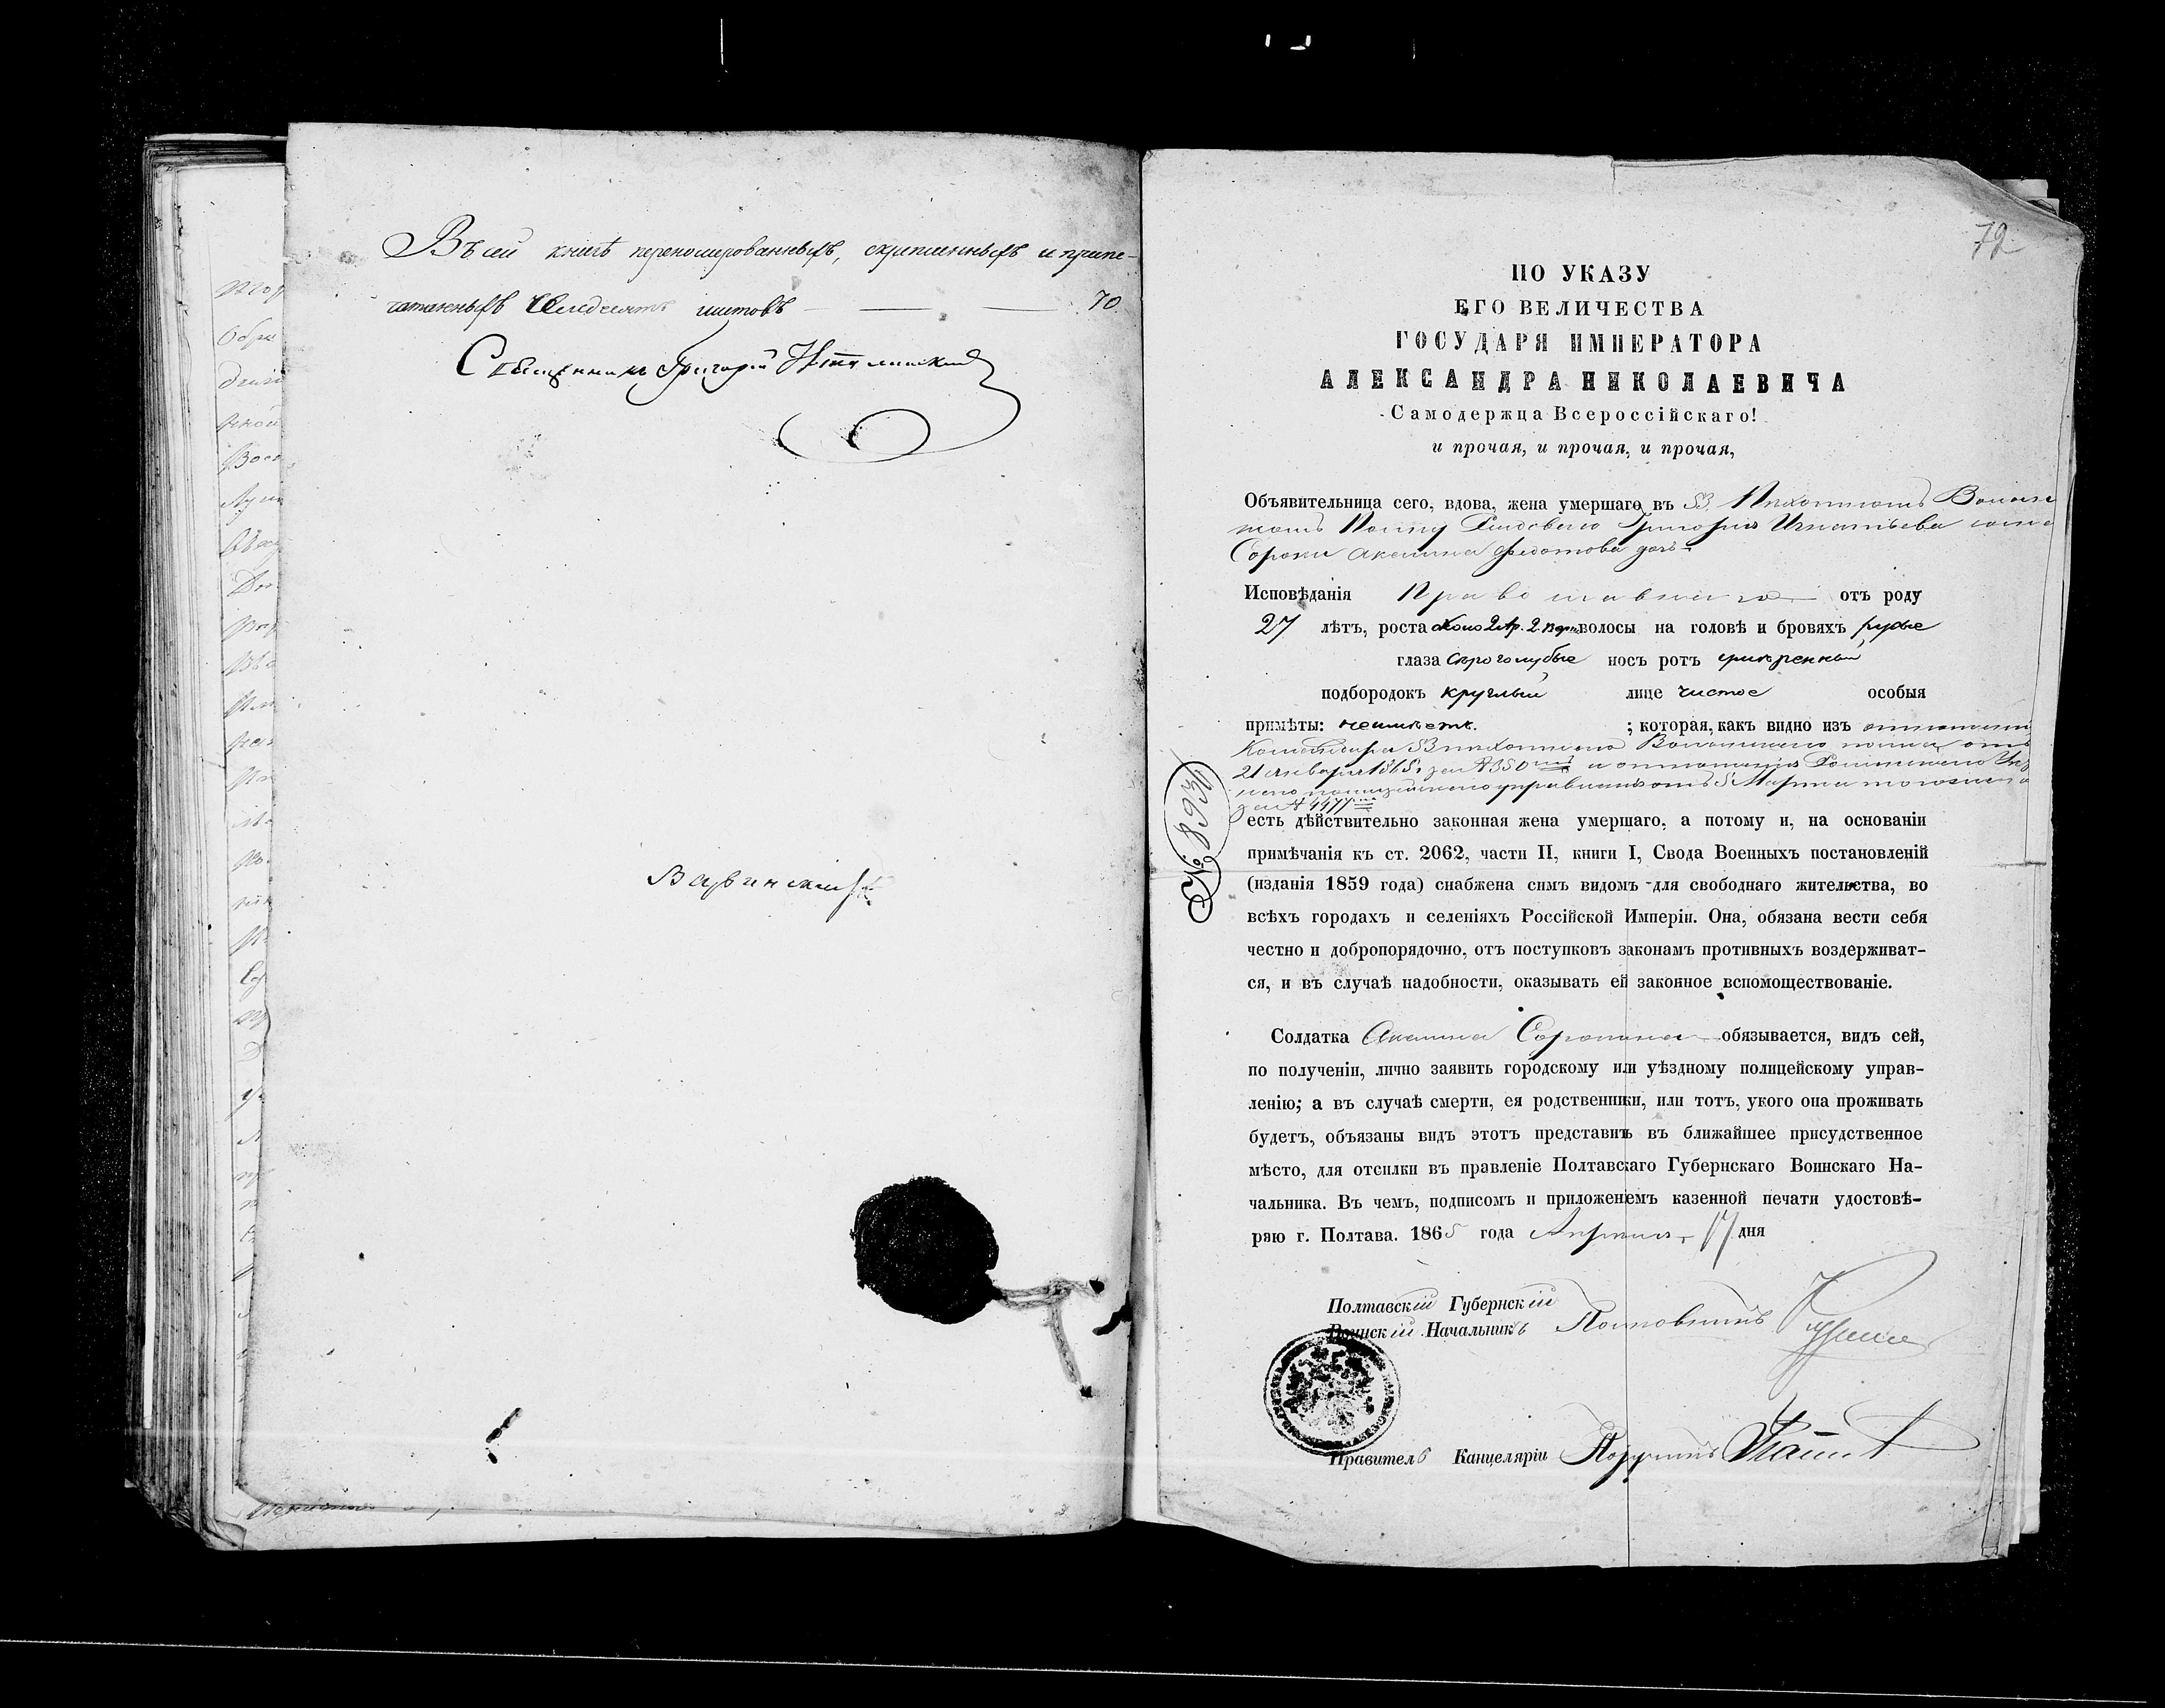 Въ сей книгѣ переномерованныхъ, скрепленныхъ и припе-
чатанныхъ листовъ 70.
Священникъ Григорій
72
ПО УКАЗУ
ЕГО ВЕЛИЧЕСТВА
ГОСУДАРЯ ИМПЕРАТОРА
АЛЕКСАНДРА НИКОЛАЕВИЧА
Самодержца Всероссійскаго!
и прочая, и прочая, и прочая,
Объявительница сего, вдова, жена умершаго въ 53 Пѣхотномъ Волын
скомъ Полку Рядоваго Григорія Игнатьева сына
Сороки Акелина Федотова дочь
Исповѣданія Православнаго отъ роду
27 лѣтъ, роста около 2 Ар. 2. верш. волосы на головѣ и бровяхъ русые
глаза Сѣроголубые носъ ротъ умѣренный
подбородокъ круглый лице чистое особыя
примѣты: неимѣетъ. ; которая, какъ видно изъ отношенія
Командира 53 пѣхотнаго Волынскаго полка отъ
21 Января 1865 г. за № 350 и отношенія Роменскаго Уѣз
днаго полицейскаго управленія отъ 5 Марта
за № 4477
№ 8932
есть дѣйствительно законная жена умершаго, а потому и, на основаніи
примѣчанія къ ст. 2062, части II, книги I, Свода Военныхъ постановленій
(изданія 1859 года) снабжена симъ видомъ для свободнаго жительства, во
всѣхъ городахъ и селеніяхъ Россійской Имперіи. Она, обязана вести себя
честно и добропорядочно, отъ поступковъ законамъ противныхъ воздерживат-
ся, и въ случаѣ надобности, оказывать ей законное вспомоществованіе.
Солдатка Акелина Сорокина обязывается, видъ сей,
по полученіи, лично заявить городскому или уѣздному полицейскому управ-
ленію; а въ случаѣ смерти, ея родственники, или тотъ, укого она проживать
будетъ, объязаны видъ этотъ представить въ ближайшее присудственное
мѣсто, для отсилки въ правленіе Полтавскаго Губернскаго Воинскаго На-
чальника. Въ чемъ, подписомъ и приложенемъ казенной печати удостовѣ-
ряю г. Полтава. 1865 года Апрѣля 17 дня
Полтавскій Губернскій
Воинскій Начальникъ Полковникъ
Правитель Канцеляріи Поручикъ